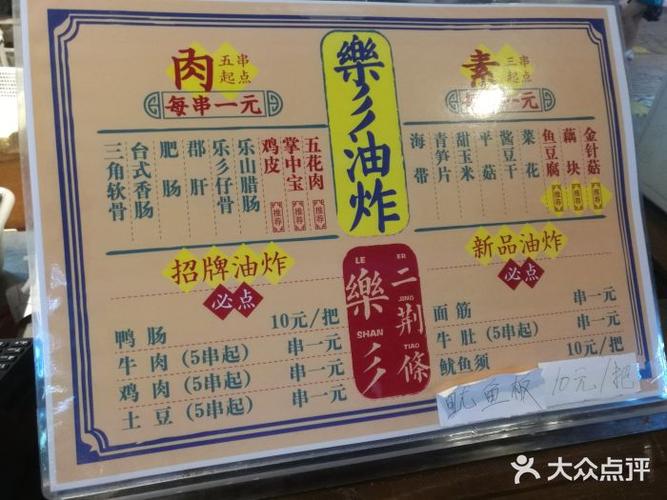 肉 五串起点
每串一元
五花肉 推荐
掌中宝 推荐
鸡皮 推荐
乐山腊肠
乐彡仔骨
郡肝
肥肠
台式香肠
三角软骨
樂彡油炸
素 三串起点
一元
金针菇 推荐
藕块 推荐
鱼豆腐 推荐
菜花
酱豆干
平菇
甜玉米
青笋片
海带
招牌油炸
必点
鸭肠 10元/把
牛肉(5串起) 串一元
鸡肉(5串起) 串一元
土豆(5串起) 串一元
LE ER
樂彡 二荆條
SHAN JING TIAO
新品油炸
必点
面筋 串一元
牛肚(5串起) 串一元
鱿鱼须 10元/把
鱿鱼板 10元/把
大众点评